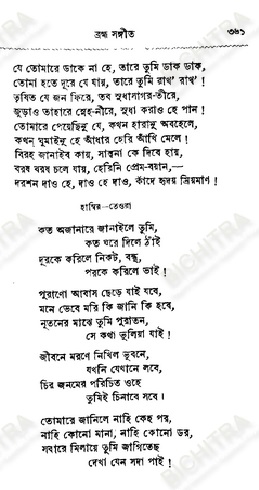 ব্রহ্ম সঙ্গীত ৩৬১
যে তোমারে ডাকে না হে, তারে তুমি ডাক ডাক,
তোমা হতে দূরে যে যায়, তারে তুমি রাখ' রাখ' !
তৃষিত যে জন ফিরে, তব সুধাসাগর-তীরে,
জুড়াও তাহারে স্নেহ-নীরে, সুধা করাও হে পান !
তোমারে পেয়েছিনু যে, কখন হারানু অবহেলে,
কখন্ ঘুমাইনু হে আঁধার হেরি আঁখি মেলে !
বিরহ জানাইব কায়, সান্ত্বনা কে দিবে হায়,
বরষ বরষ চলে যায়, হেরিনি প্রেম-বয়ান,—
দরশন দাও হে, দাও হে দাও, কাঁদে হৃদয় ম্রিয়মাণ !
হাম্বির–তেওরা
কত অজানারে জানাইলে তুমি,
কত ঘরে দিলে ঠাঁই
দূরকে করিলে নিকট, বন্ধু,
পরকে করিলে ভাই !
পুরাণো আবাস ছেড়ে যাই যবে,
মনে ভেবে মরি কি জানি কি হবে,
নূতনের মাঝে তুমি পুরাতন,
সে কথা ভুলিয়া যাই !
জীবনে মরণে নিখিল ভুবনে,
যখনি যেখানে লবে,
চির জনমের পরিচিত ওহে
তুমিই চিনাবে সবে ।
তোমারে জানিলে নাহি কেহ পর,
নাহি কোনো মানা, নাহি কোনো ডর,
সবারে মিলায়ে তুমি জাগিতেছ
দেখা যেন সদা পাই !